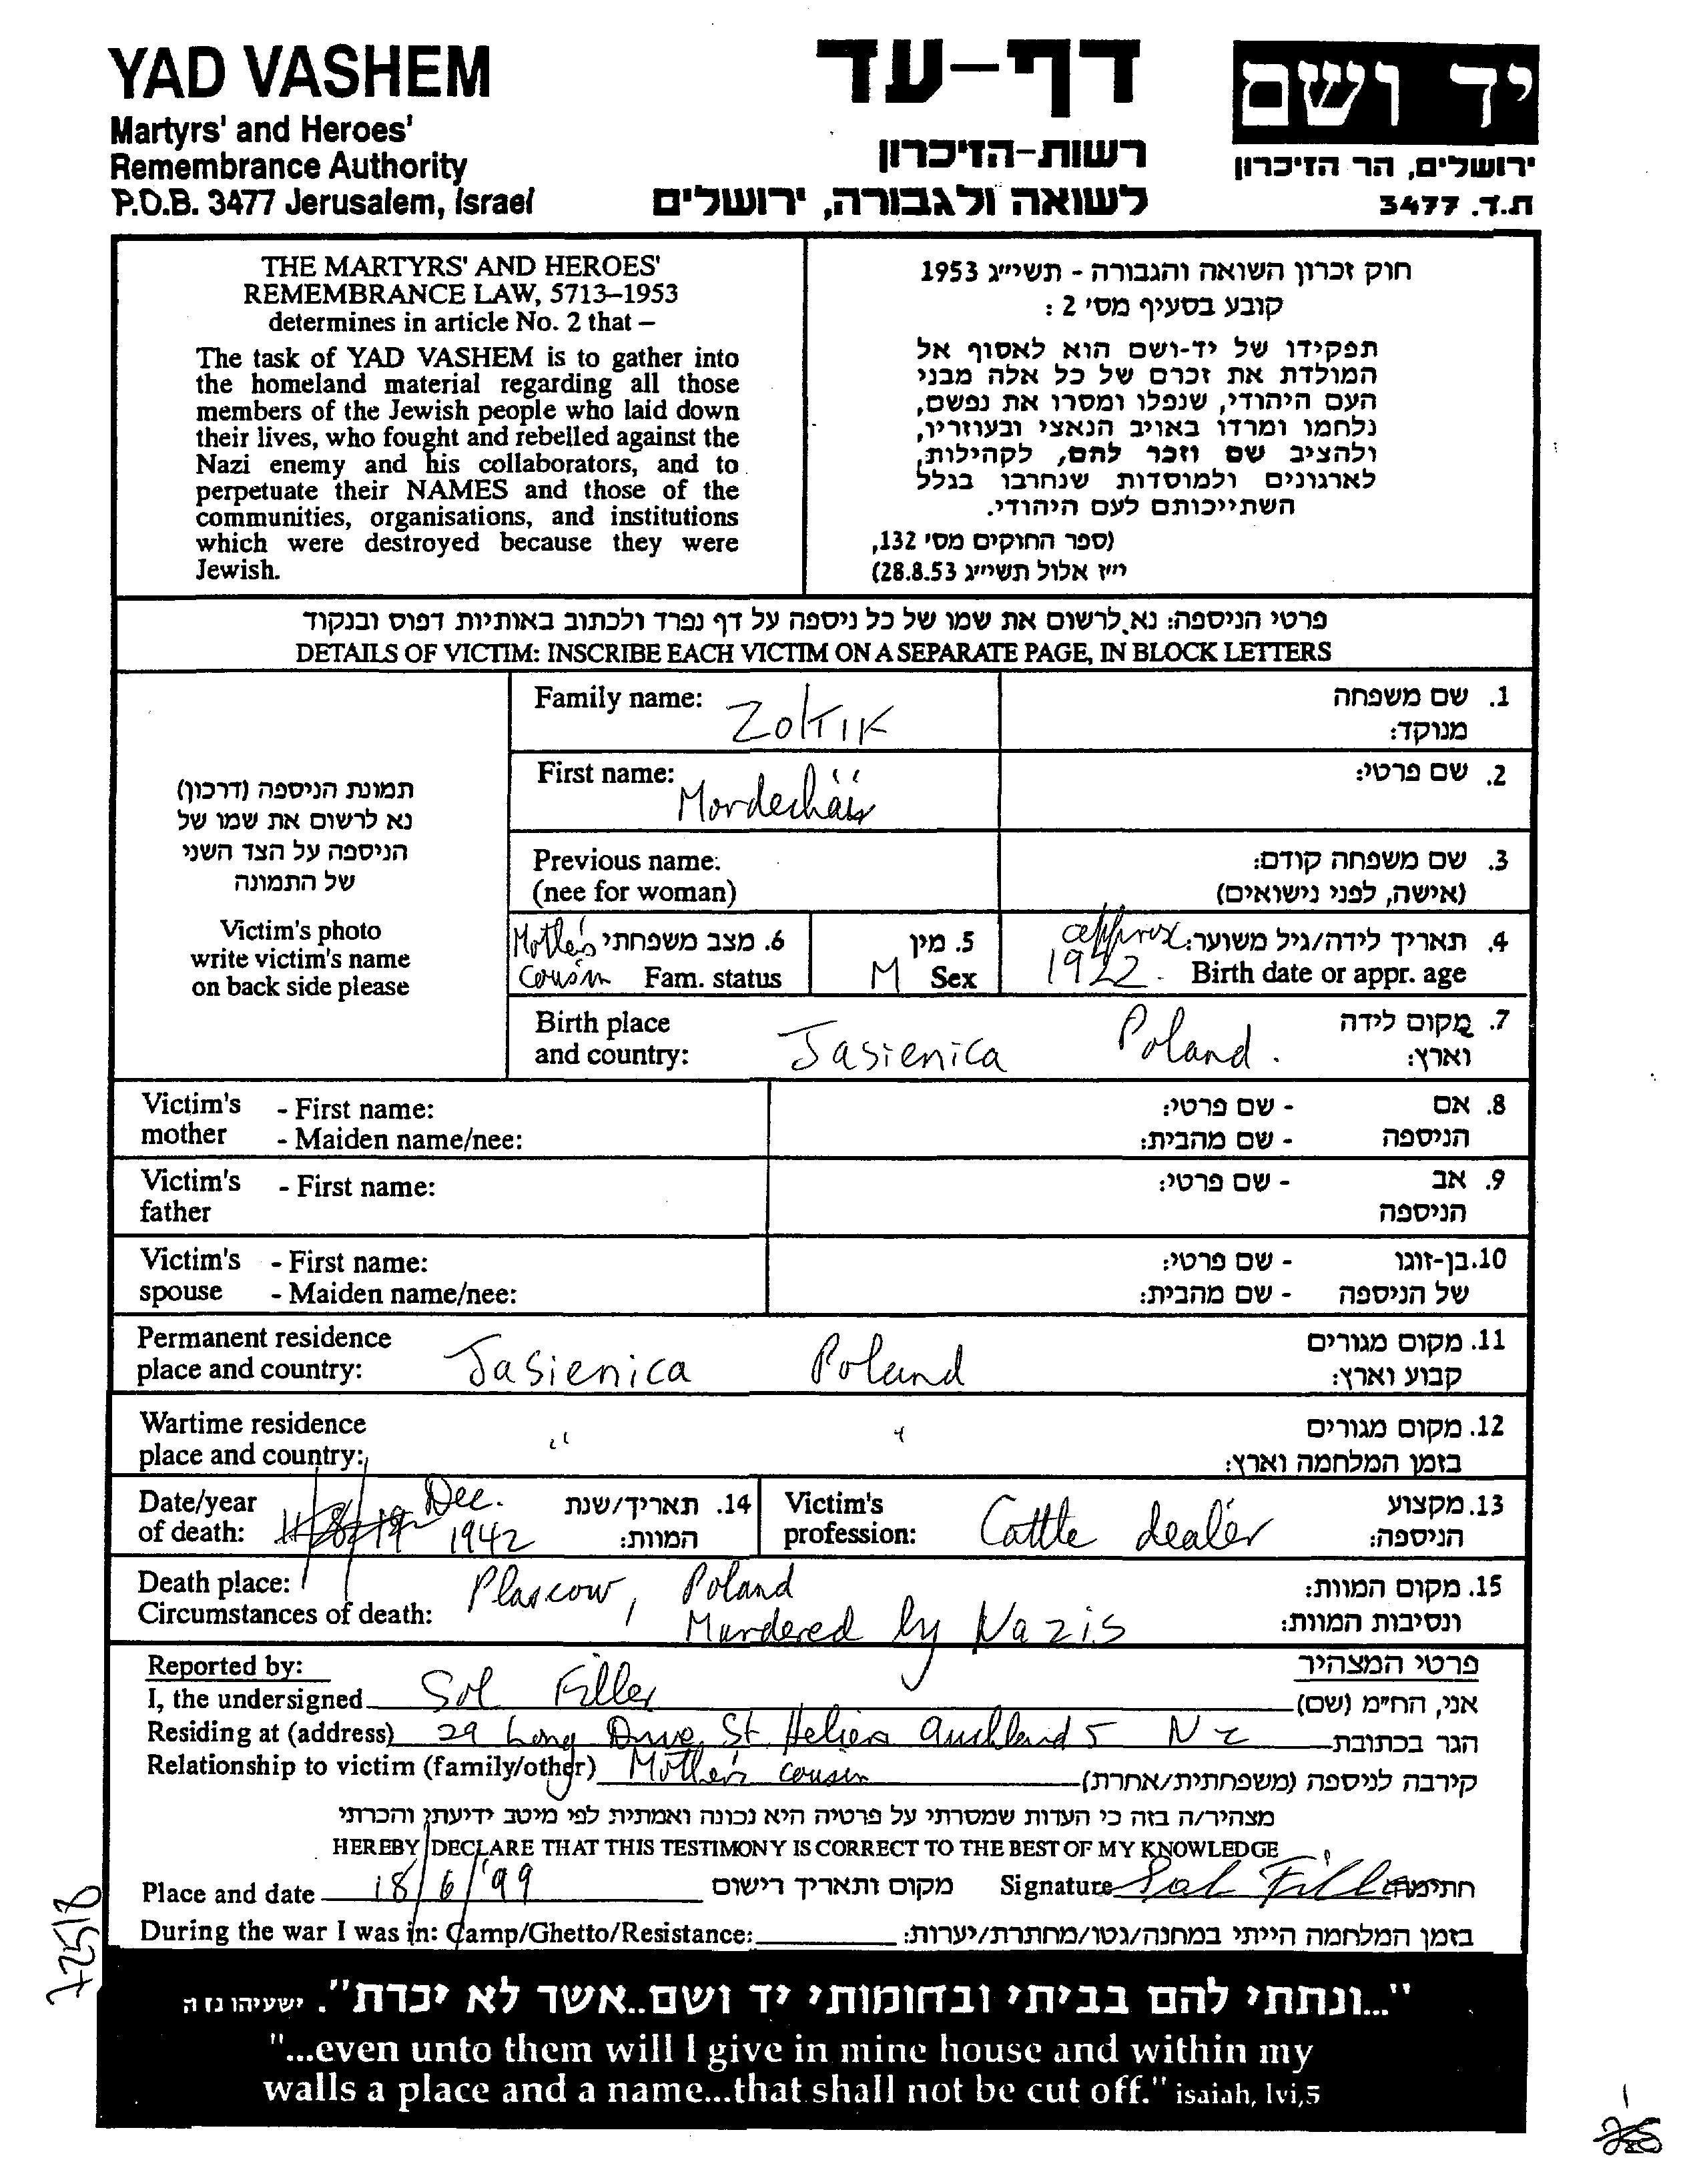 YAD VASHEM
Martyrs' and Heroes'
Remembrance Authority
P.O.B. 3477 Jerusalem, Israel
דף-עד
רשות-הזיכרון
לשואה ולגבורה, ירושלים
יד ושם
ירושלים, הר הזיכרון
ת.ד. 3477
THE MARTYRS' AND HEROES'
REMEMBRANCE LAW, 5713–1953
determines in article No. 2 that –
The task of YAD VASHEM is to gather into
the homeland material regarding all those
members of the Jewish people who laid down
their lives, who fought and rebelled against the
Nazi enemy and his collaborators, and to
perpetuate their NAMES and those of the
communities, organisations, and institutions
which were destroyed because they were
Jewish.
חוק זכרון השואה והגבורה - תשי״ג 1953
קובע בסעיף מס׳ 2 :
תפקידו של יד-ושם הוא לאסוף אל
המולדת את זכרם של כל אלה מבני
העם היהודי, שנפלו ומסרו את נפשם,
נלחמו ומרדו באויב הנאצי ובעוזריו,
ולהציב שם וזכר להם, לקהילות,
לארגונים ולמוסדות שנחרבו בגלל
השתייכותם לעם היהודי.
(ספר החוקים מס׳ 132,
י״ז אלול תשי״ג 28.8.53)
פרטי הניספה: נא לרשום את שמו של כל ניספה על דף נפרד ולכתוב באותיות דפוס ובנקוד
DETAILS OF VICTIM: INSCRIBE EACH VICTIM ON A SEPARATE PAGE, IN BLOCK LETTERS
תמונת הניספה (דרכון)
נא לרשום את שמו של
הניספה על הצד השני
של התמונה
Victim's photo
write victim's name
on back side please
Family name: Zoltik 1. שם משפחה
מנוקד:
First name: Mordechai 2. שם פרטי:
Previous name: 3. שם משפחה קודם:
(nee for woman) (אישה, לפני נישואים)
Mother's 6. מצב משפחתי 5. מין approx 4. תאריך לידה/גיל משוער:
Cousin Fam. status M Sex 1922. Birth date or appr. age
Birth place 7. מקום לידה
and country: Jasienica Poland. וארץ:
Victim's - First name: - שם פרטי: 8. אם
mother - Maiden name/nee: - שם מהבית: הניספה
Victim's - First name: - שם פרטי: 9. אב
father הניספה
Victim's - First name: - שם פרטי: 10. בן-זוגו
spouse - Maiden name/nee: - שם מהבית: של הניספה
Permanent residence 11. מקום מגורים
place and country: Jasienica Poland קבוע וארץ:
Wartime residence 12. מקום מגורים
place and country: " " בזמן המלחמה וארץ:
Date/year Dec. 14. תאריך/שנת Victim's 13. מקצוע
of death: 1942 המוות: profession: Cattle dealer הניספה:
Death place: Plascow, Poland 15. מקום המוות:
Circumstances of death: Murdered by Nazis ונסיבות המוות:
Reported by: פרטי המצהיר
I, the undersigned Sol Filler אני, הח״מ (שם)
Residing at (address) 29 Long Drive St. Heliers Auckland 5 NZ הגר בכתובת
Relationship to victim (family/other) Mother's cousin קירבה לניספה (משפחתית/אחרת)
מצהיר/ה בזה כי העדות שמסרתי על פרטיה היא נכונה ואמתית לפי מיטב ידיעתי והכרתי
HEREBY DECLARE THAT THIS TESTIMONY IS CORRECT TO THE BEST OF MY KNOWLEDGE
Place and date 18/6/'99 מקום ותאריך רישום Signature Sol Filler חתימה
During the war I was in: Camp/Ghetto/Resistance: בזמן המלחמה הייתי במחנה/גטו/מחתרת/יערות:
"...ונתתי להם בביתי ובחומותי יד ושם..אשר לא יכרת". ישעיהו נז ה
"...even unto them will I give in mine house and within my
walls a place and a name...that shall not be cut off." isaiah, lvi,5